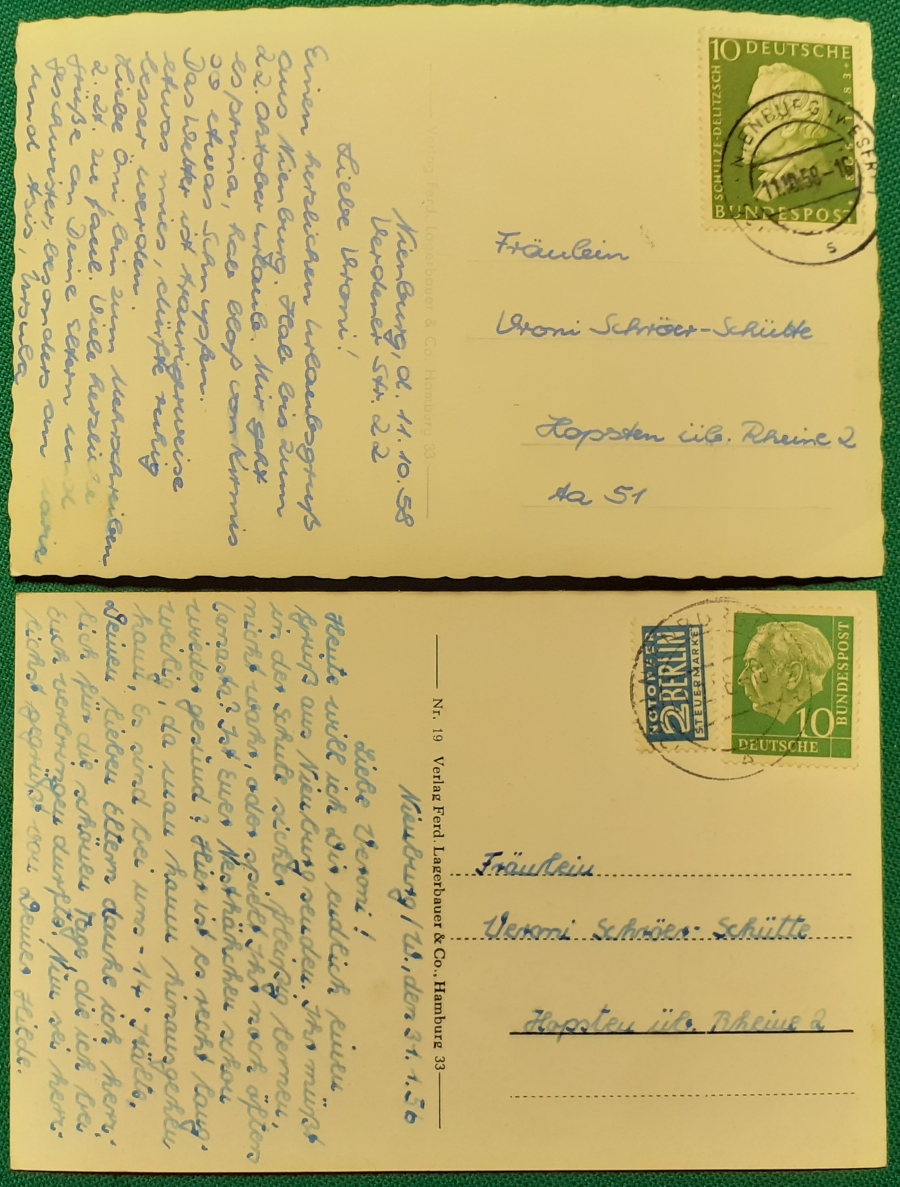 Nienburg, d. 11.10.58
Verdener Str. 22
Liebe Vroni!
Einen herzlichen Urlaubsgruß
aus Nienburg. Habe bis zum
22. Oktober Urlaub. Mir geht
es prima, hab bloß von Kirmis
so etwas Schnupfen.
Das Wetter ist traurigerweise
etwas mies, dürfte ruhig
besser werden.
Liebe Omi, bin zum Mehrschreiben
z. Zt. zu faul. Viele herzliche
Grüße an Deine Eltern und
Geschwister, besonders an Maria
und tsis, Ursula
Verlag Ferd. Lagerbauer & Co. Hamburg 33
10 DEUTSCHE
SCHULZE-DELITZSCH
BUNDESPOST
NIENBURG (WESER)
11.10.58-16
Fräulein
Vroni Schröer-Schütte
Hopsten üb. Rheine 2
Aa 51
Nienburg/W., den 31.1.56
Liebe Veroni!
Heute will ich Dir endlich einen
Gruß aus Nienburg senden. Ihr müßt
in der Schule sicher fleißig lernen,
nicht wahr, oder spielt Ihr noch öfters
Canasta? Ist Euer Nesthäkchen schon
wieder gesund? Hier ist es recht lang-
weilig, da man kaum hinausgehen
kann. Es sind bei uns -17° Kälte.
Deinen lieben Eltern danke ich herz-
lich für die schönen Tage, die ich bei
Euch verbringen durfte. Nun sei herz-
lichst gegrüßt von Deiner Heide.
Nr. 19 Verlag Ferd. Lagerbauer & Co., Hamburg 33
NOTOPFER
2 BERLIN
STEUERMARKE
10
DEUTSCHE
BUNDESPOST
Fräulein
Veroni Schröer-Schütte
Hopsten üb. Rheine 2